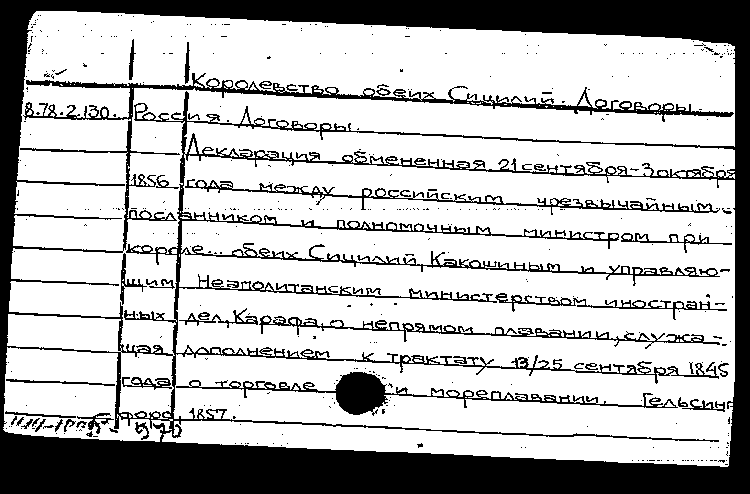 Королевство обеих Сицилий. Договоры.
8.78.2.130. Россия. Договоры.
Декларация обмененная 21 сентября-3 октября
1856 года между российским чрезвычайным
посланником и полномочным министром при
короле... обеих Сицилий, Какошиным и управляю-
щим Неаполитанским министерством иностран-
ных дел, Карафа, о непрямом плавании, служа-
щая дополнением к трактату 13/25 сентября 1845
года о торговле и мореплавании. Гельсинг
форс, 1857.